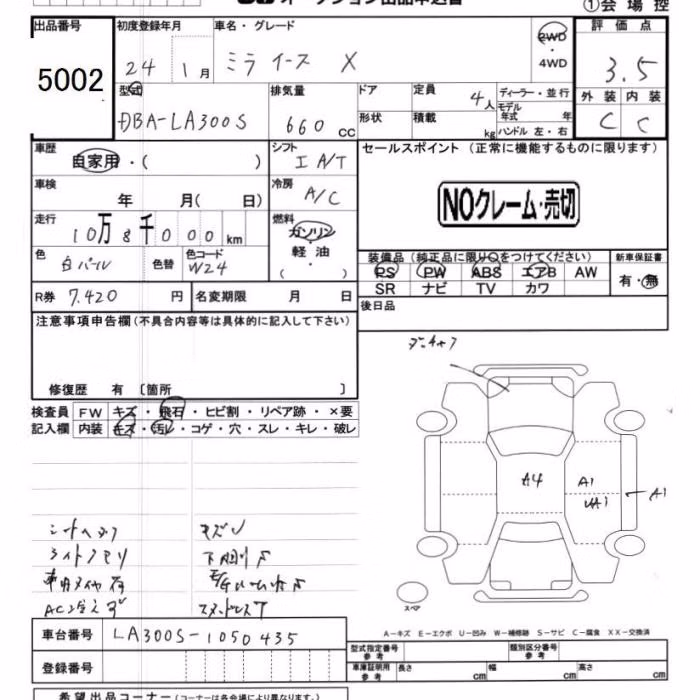 オークション出品申込書
①会場控
出品番号 初度登録年月 車名・グレード 2WD・4WD 評価点
5002 24年 1月 ミライース X 3.5
型式 排気量 ドア 定員 4人 ディーラー・並行 外装 内装
DBA-LA300S 660cc 形状 積載 kg モデル年式 年 ハンドル 左・右 C C
車歴 自家用・( ) シフト IA/T セールスポイント (正常に機能するものに限ります)
車検 年 月( 日) 冷房 A/C NOクレーム・売切
走行 10万8千000km 燃料 ガソリン・軽油
色 白パール 色替 色コード W24 装備品(純正品に限り○をつけてください) 新車保証書
PS PW ABS エアB AW 有・無
SR ナビ TV カワ
R券 7.420円 名変期限 月 日 後日品
注意事項申告欄(不具合内容等は具体的に記入して下さい)
修復歴 有 〔箇所 〕
検査員 FW キズ・飛石・ヒビ割・リペア跡・×要
記入欄 内装 キズ・汚レ・コゲ・穴・スレ・キレ・破レ
A4 A1 A1
スペア
車台番号 LA300S-1050435
A−キズ E−エクボ U−凹み W−補修跡 S−サビ C−腐食 XX−交換済
登録番号 型式指定番号 参考 類別区分番号 参考
車庫証明用 参考 長さ cm 幅 cm 高さ cm
希望出品コーナー(コーナーは各会場により異なります。)